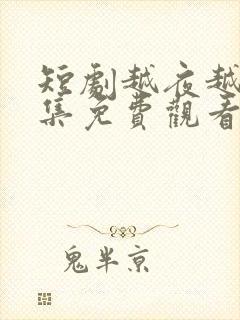 短劇越夜越
集免費觀看
鬼半京